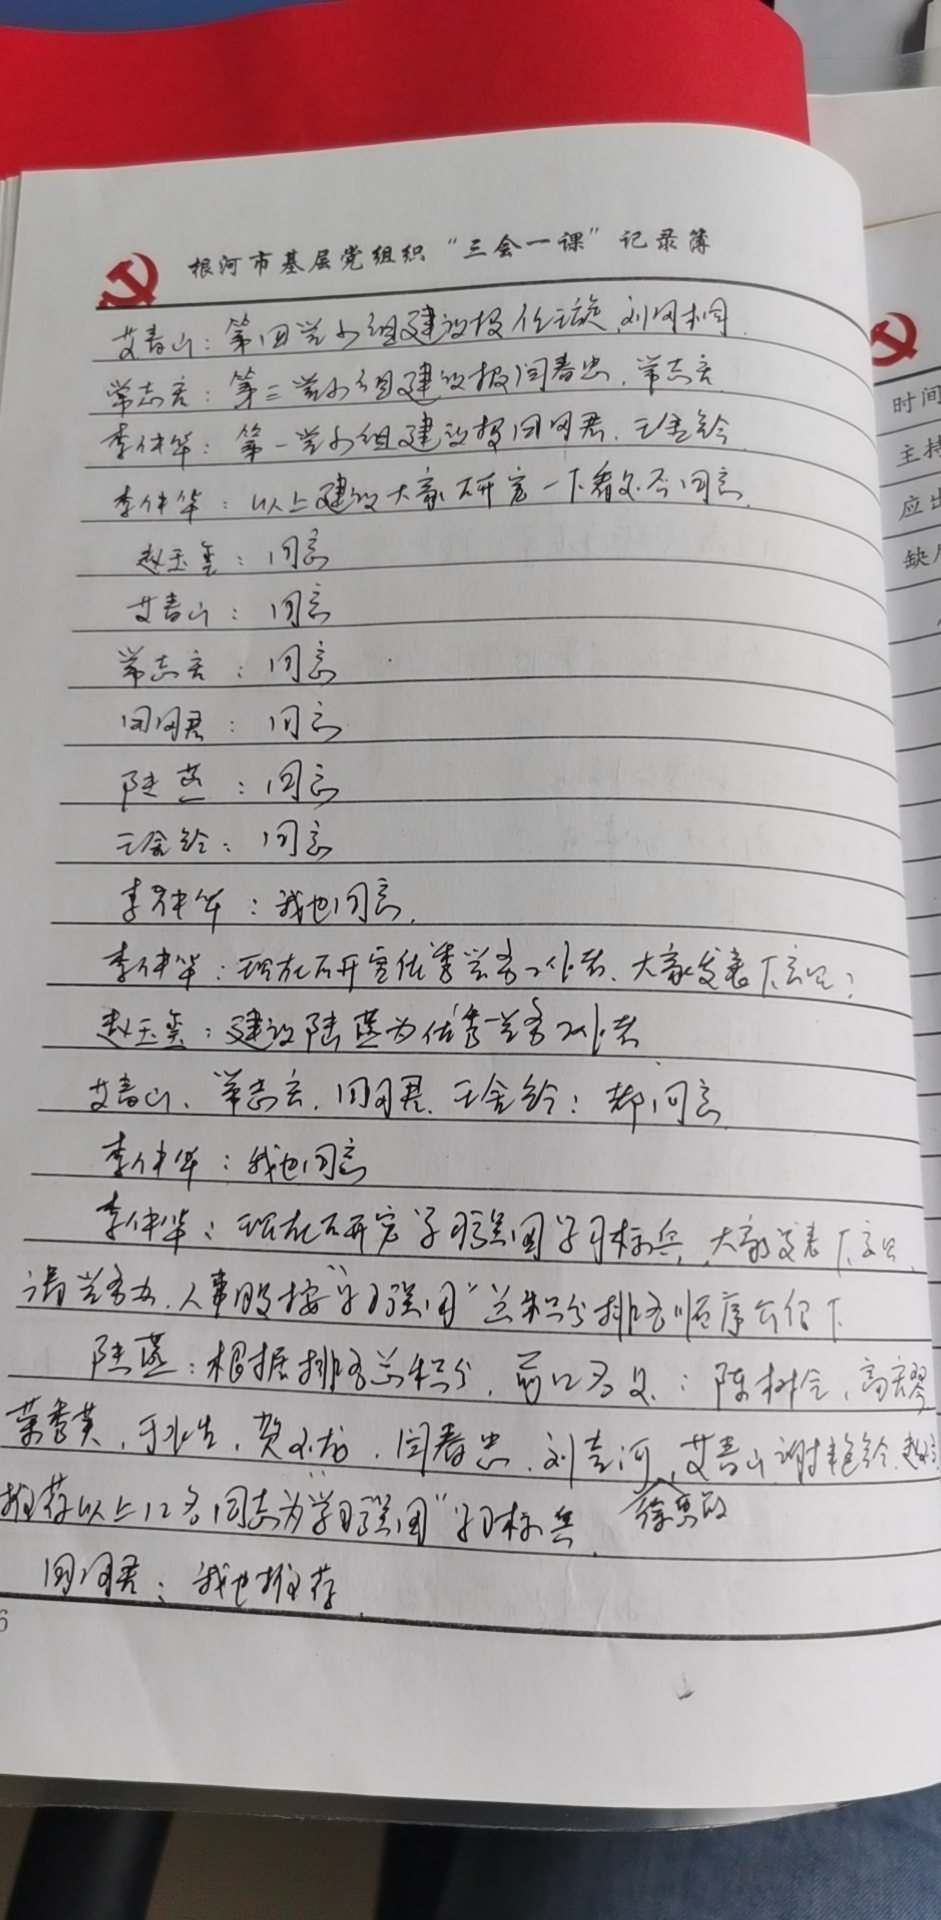 根河市基层党组织“三会一课”记录簿
艾青山：第四党小组建议报任 刘国
常志宏：第三党小组建议报闫春忠、常志宏
李仲华：第一党小组建议报田国君、王金铃
李仲华：以上建议大家研究一下看是否同意
赵玉玺：同意
艾青山：同意
常志宏：同意
田国君：同意
陆燕：同意
王金铃：同意
李仲华：我也同意。
李仲华：现在研究优秀党务工作者、大家发表下意见：
赵玉玺：建议陆燕为优秀党务工作者
艾青山、常志宏、田国君、王金铃：都同意
李仲华：我也同意
李仲华：现在研究学习强国学习标兵，大家发表下意见，
请党务办、人事股按“学习强国”总积分排名顺序公布下
陆燕：根据排名总积分，前12名是：陈树全、高
荣秀英、于 、贺 、闫春忠、刘吉河、艾青山、谢艳铃、赵
徐惠
推荐以上12名同志为“学习强国”学习标兵
田国君：我也推荐
6
时间
主持
应出
缺席